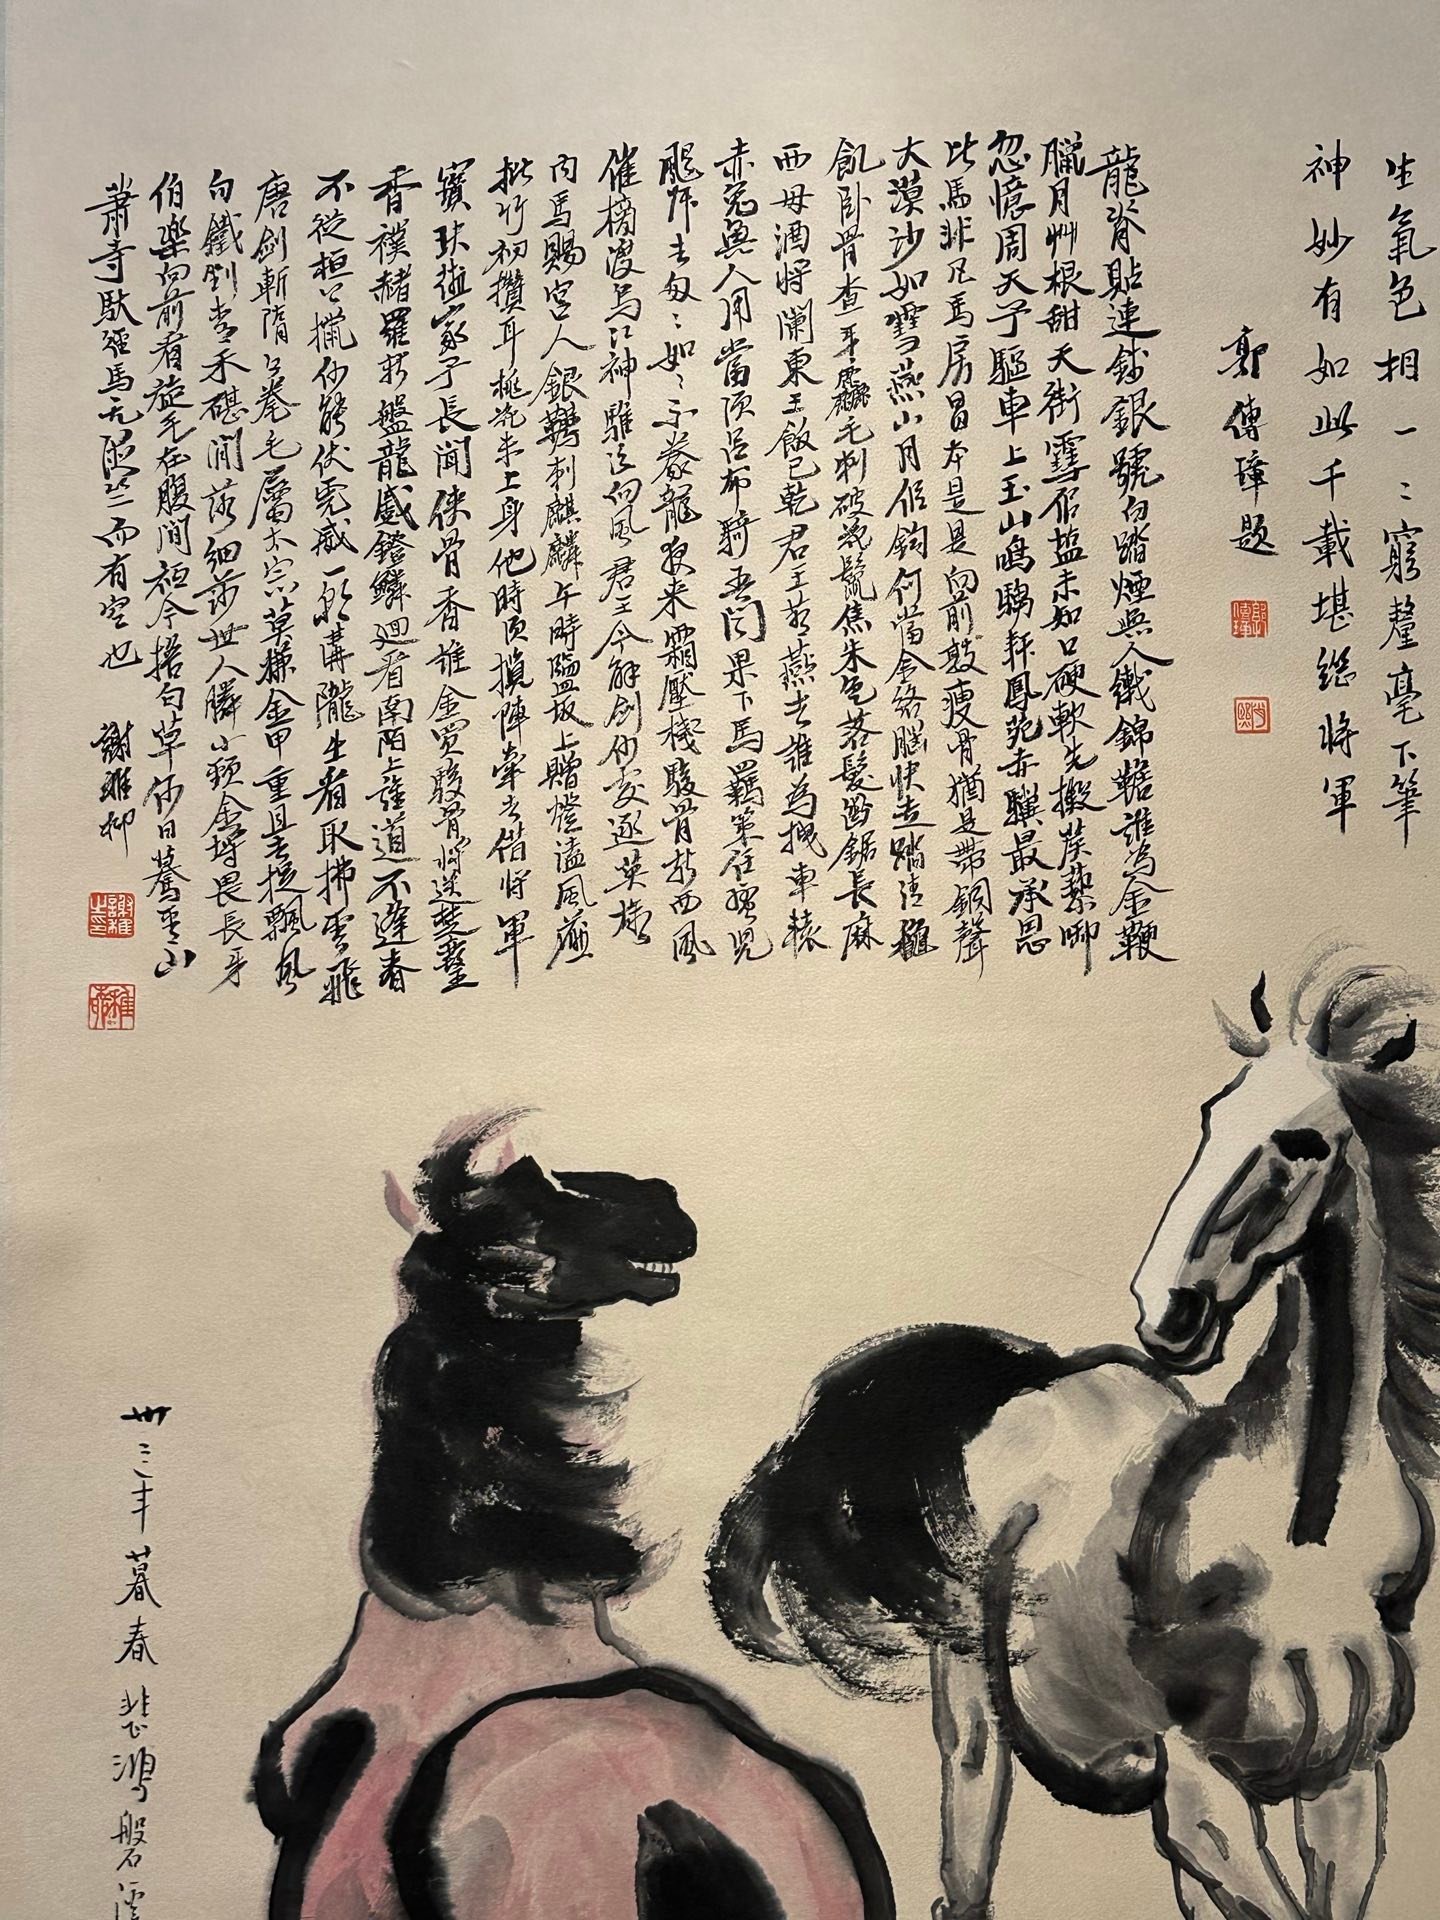 生氣色相一〻窮釐毫下筆
神妙有如此千載堪繼將軍
郭傳璋題
龍脊貼連錢銀蹏白踏煙無人織錦韂誰為金鞭
臘月艸根甜天街雪似鹽未知口硬軟先擬蒺藜啣
忽憶周天子驅車上玉山鳴騶辭鳳苑赤驥最承恩
此馬非凡馬房星本是星向前敲瘦骨猶是帶銅聲
大漠沙如雪燕山月似鉤何當金絡腦快走踏清穐
飢臥骨查牙麤毛刺破花鬣焦朱色落髮斷鋸長麻
西母酒將闌東王飯已乾君王若燕去誰為拽車轅
赤兔無人用當須呂布騎吾聞果下馬羈策任蠻兒
颷叔去匆〻如〻不豢龍夜來霜壓棧駿骨折西風
催榜渡烏江神騅泣向風君王今解劍何處逐英雄
內馬賜宮人銀韉刺麒麟午時鹽坂上蹭蹬溘風塵
批竹初攢耳桃花未上身他時須攪陣牽去借將軍
寶玦誰家子長聞俠骨香堆金買駿骨將送楚襄王
香襆赭羅新盤龍蹙鐙鱗迴看南陌上誰道不逢春
不從桓公獵何能伏虎威一朝溝隴出看取拂雲飛
唐劍斬隋公拳毛屬太宗莫嫌金甲重且去捉飄風
白鐵剉青禾碪間落細莎世人憐小頸金埒畏長牙
伯樂向前看旋毛在腹間秪今掊白草何日驀青山
蕭寺馱經馬元從竺而有空也 謝稚柳
卅三年暮春 悲鴻磐溪